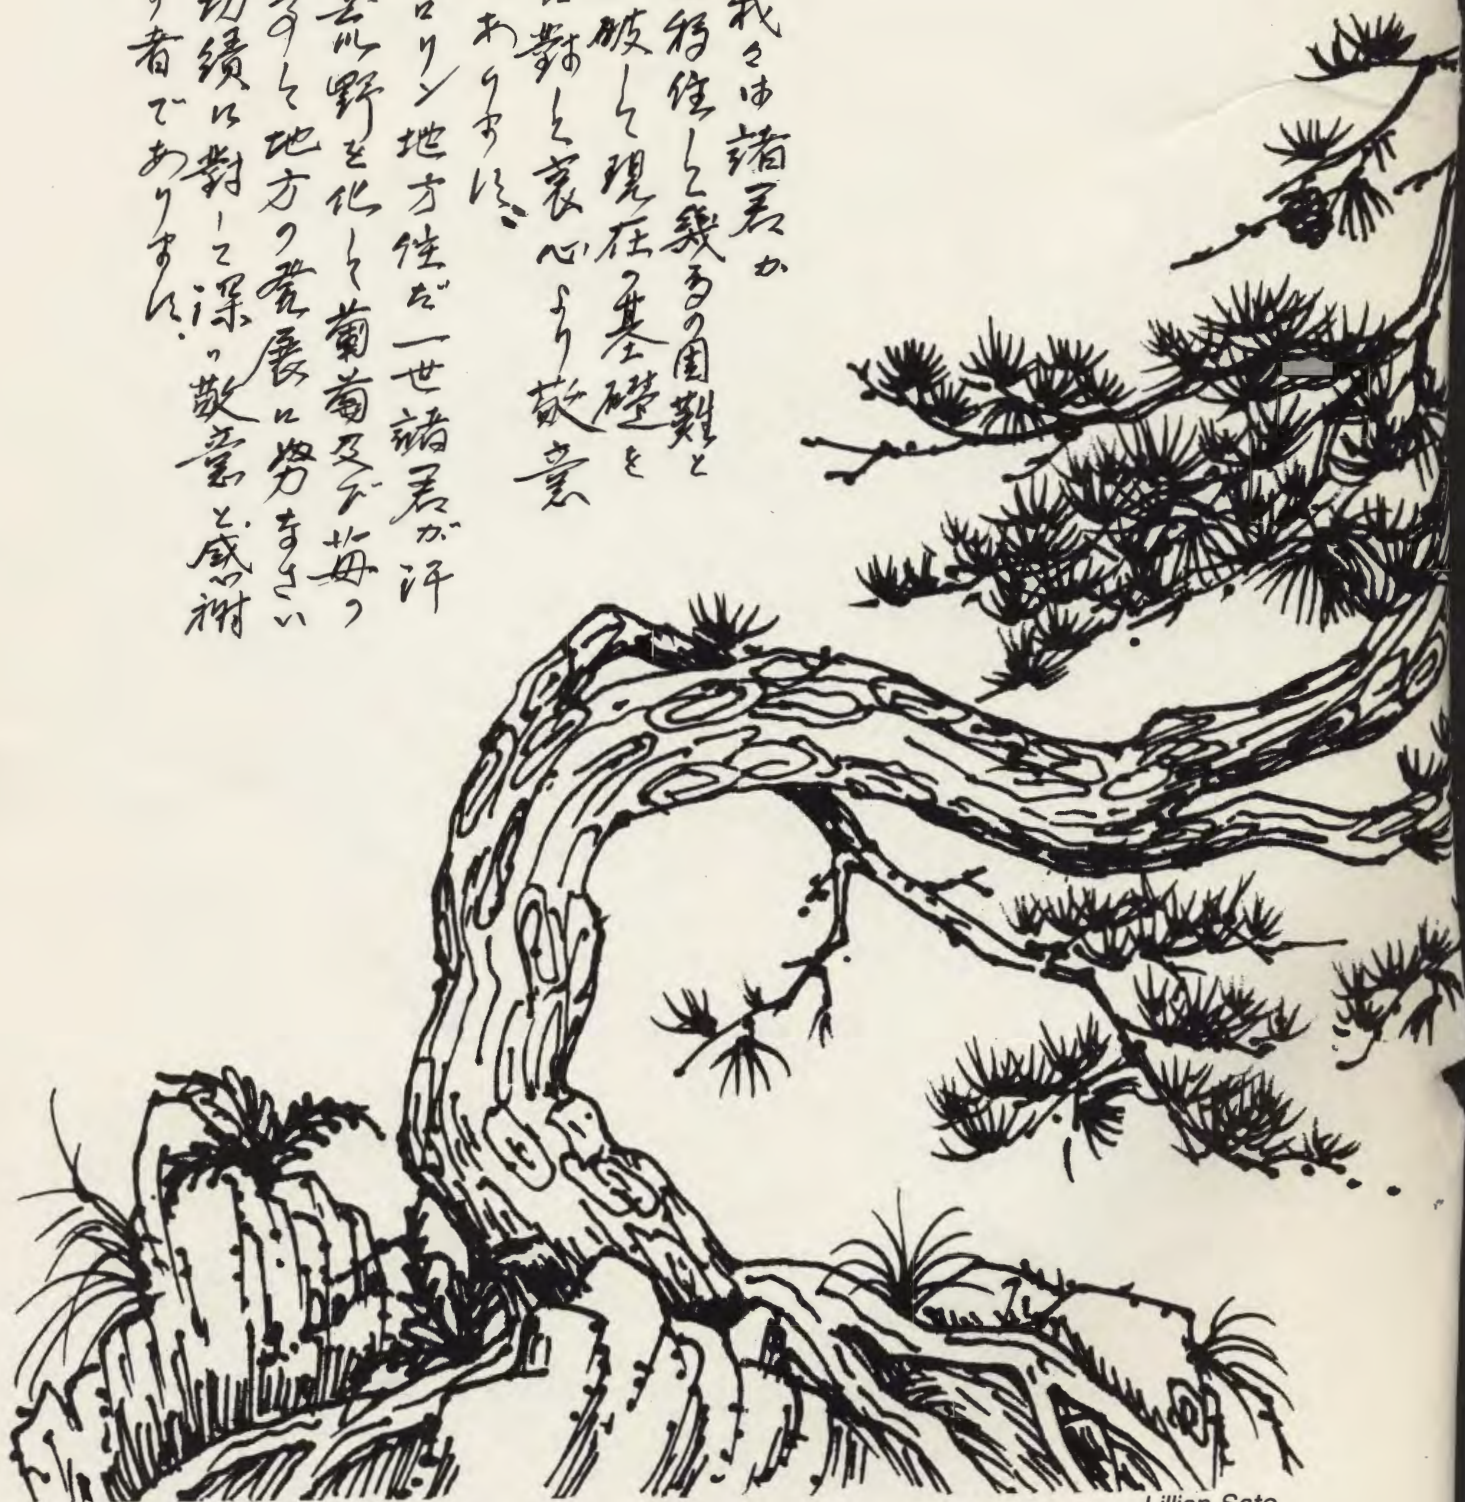 我々は諸君が
移住して幾多の困難と
破して現在の基礎を
對して衷心より敬意
あります。
ロリン地方住だ一世諸君が汗
荒野を化して葡萄及び苺の
して地方の発展に努力なさい
功績に對して深く敬意と感謝
者であります。
Lillian Sato